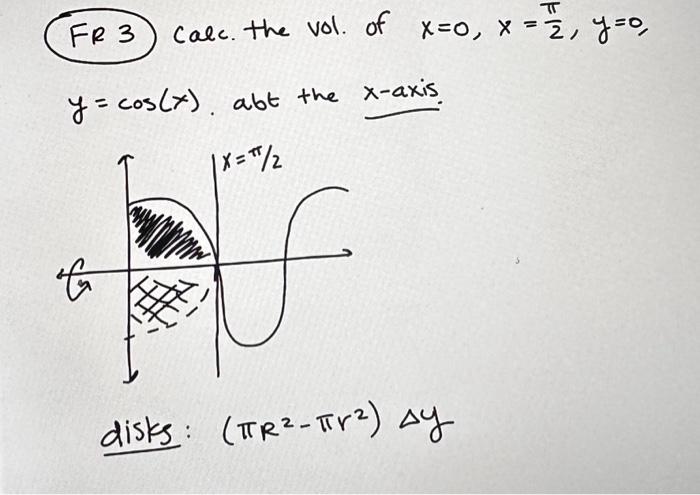 FR 3 Calc. the vol. of x=0, x = π/2, y=0,
y = cos(x). abt the x-axis.
x = π/2
disks: (πR²-πr²) Δy